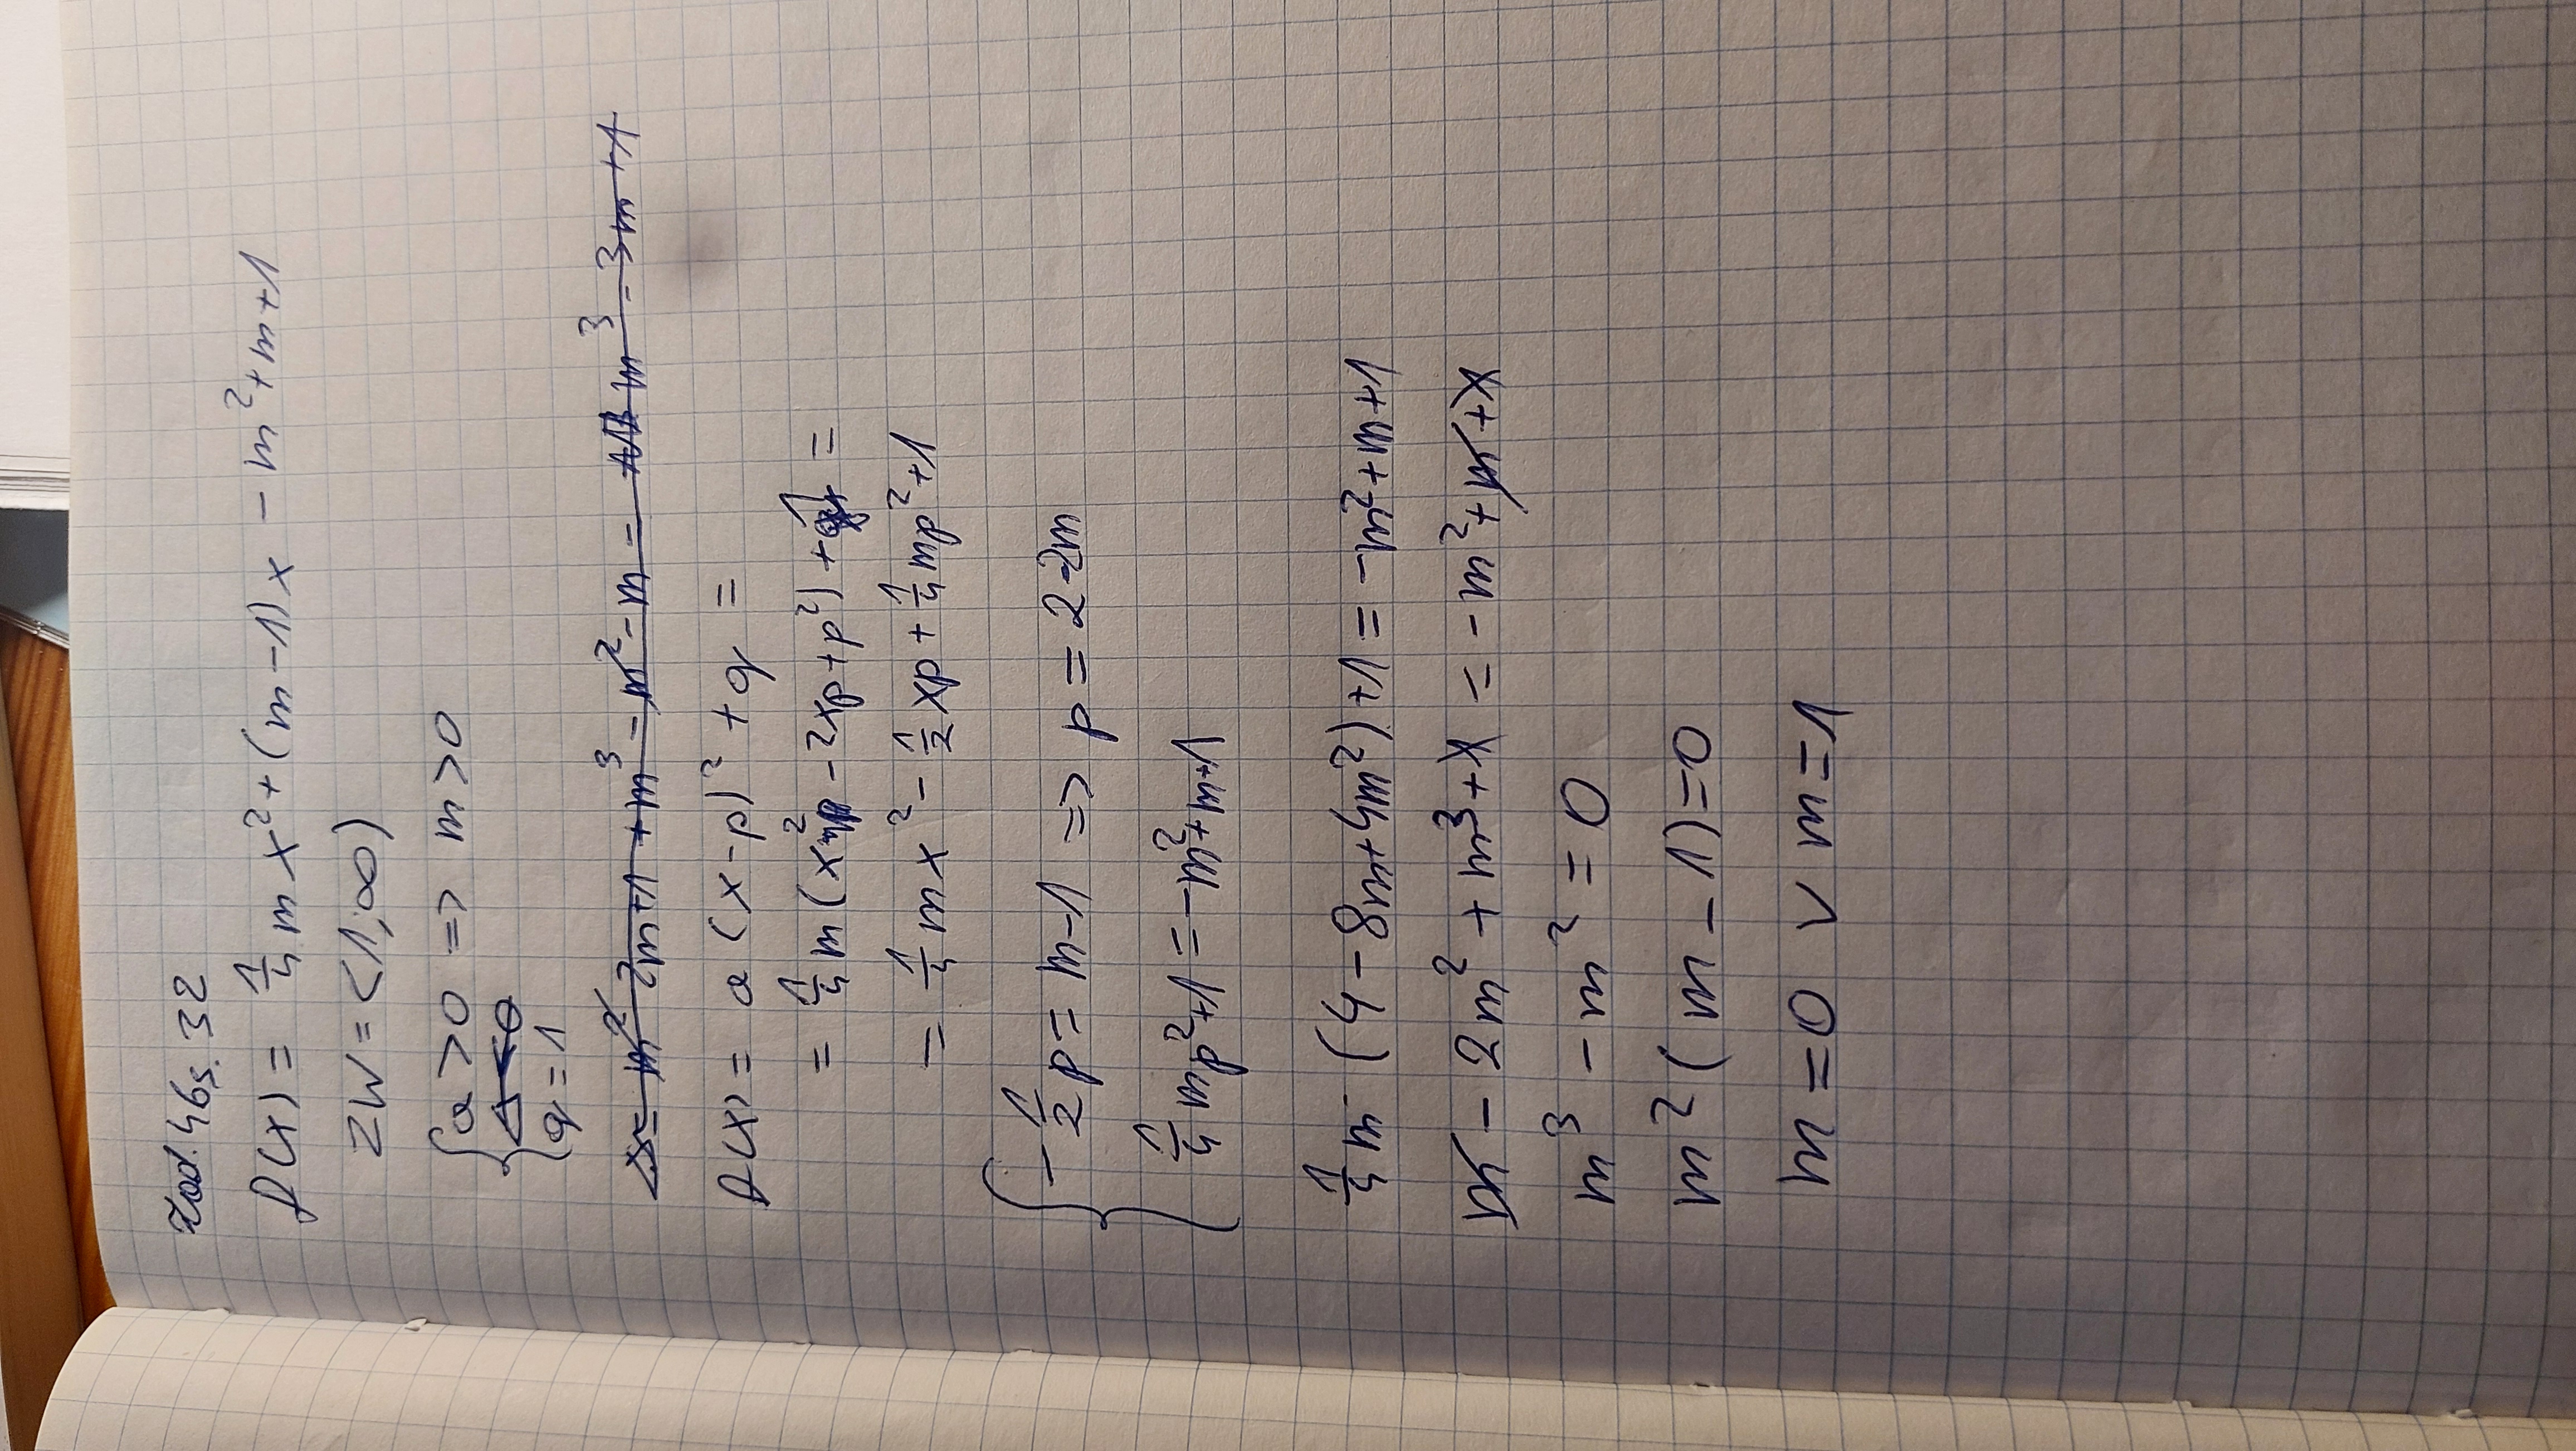 Zad. 46 s. 32
f(x) = 1/4 m x² + (m-1)x - m² + m + 1
ZW = <1;∞)
{ a > 0 => m > 0
Δ < 0
q = 1
2m+1 + m³ = m² - m = m³ - 3m + 1
f(x) = a(x-p)² + q =
= 1/4 m (x² - 2xp + p²) + 1 =
= 1/4 m x² - 1/2 xp + 1/4 mp² + 1
{ -1/2 p = m-1 => p = 2-2m
1/4 mp² + 1 = -m² + m + 1
1/4 m (4 - 8m + 4m²) + 1 = -m² + m + 1
m - 2m² + m³ + 1 = -m² + m + 1
m³ - m² = 0
m² (m - 1) = 0
m = 0 ∨ m = 1